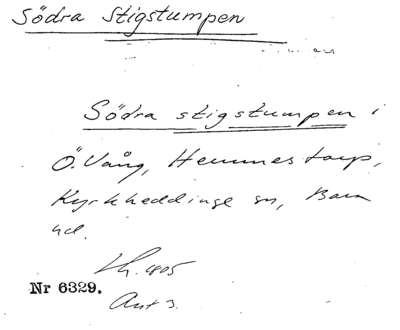 Södra Stigstumpen
Södra stigstumpen i
Ö. Vång, Hemmestorp,
Kyrkheddinge sn, Bara
hd.
Lh. 1805
Nr 6329.
Akt 3.